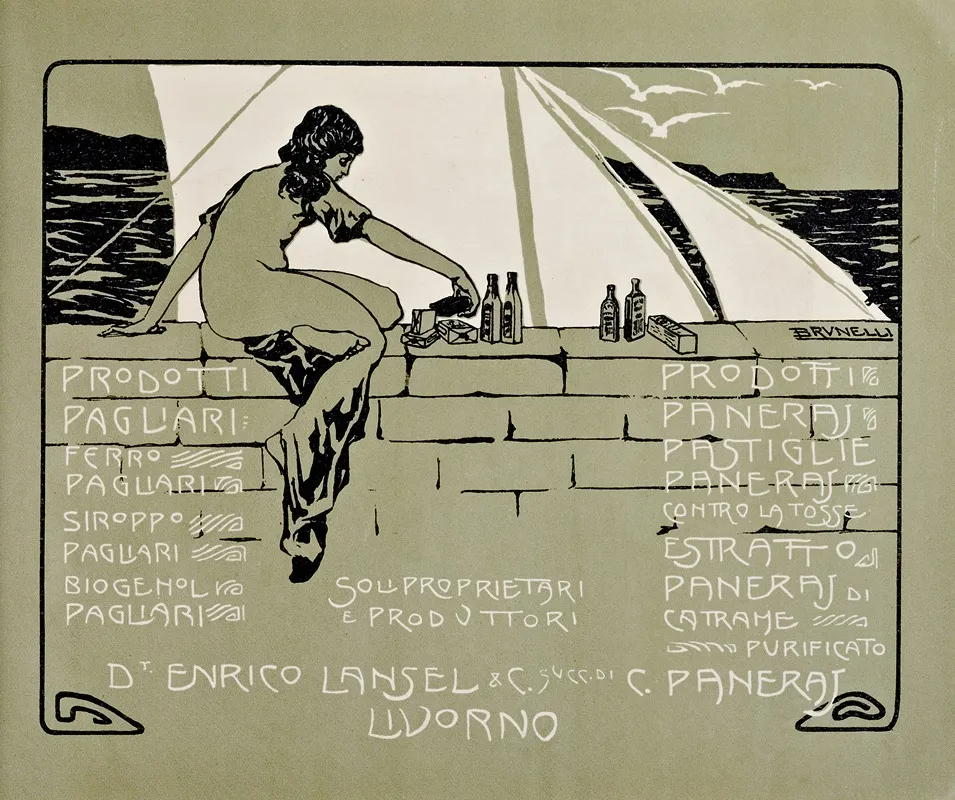 BRVNELLI
PRODOTTI
PAGLIARI:
FERRO
PAGLIARI
SIROPPO
PAGLIARI
BIOGENOL
PAGLIARI
PRODOTTI
PANERAJ
PASTIGLIE
PANERAJ
CONTRO LA TOSSE
ESTRATTO
PANERAJ DI
CATRAME
PURIFICATO
SOLI PROPRIETARI
E PRODVTTORI
DT. ENRICO LANSEL & C. SVCC. DI C. PANERAJ
LIVORNO